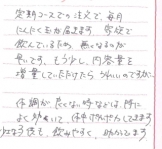 定期コースでの注文で、毎月
にんにく玉が届きます。家族で
飲んでいるため、無くなるのが
早いです。もう少し、内容量を
増量していただけたらうれしいのですが。
体調が良くない時などは、特に
よく効いて、体中があたたまってきます
飲みやすく、助かります